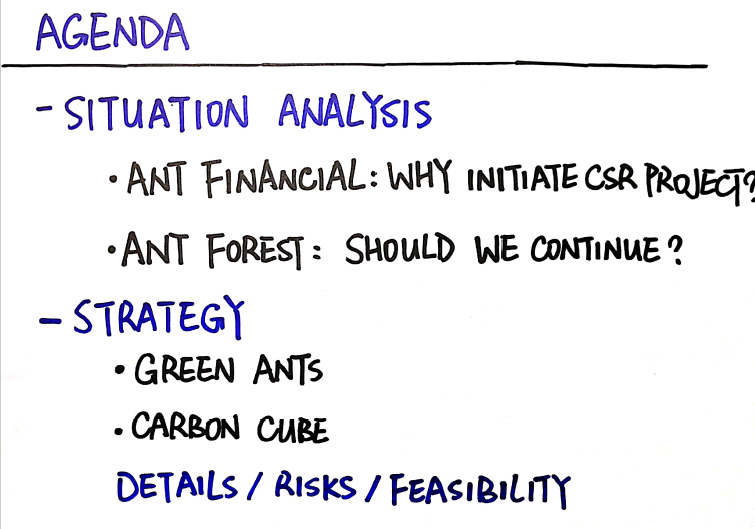 AGENDA
- SITUATION ANALYSIS
• ANT FINANCIAL: WHY INITIATE CSR PROJECT?
• ANT FOREST: SHOULD WE CONTINUE?
- STRATEGY
• GREEN ANTS
• CARBON CUBE
DETAILS / RISKS / FEASIBILITY